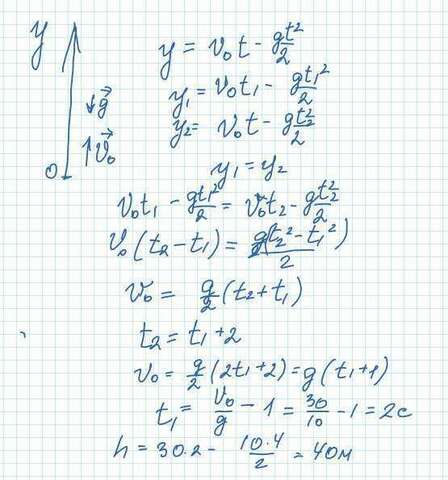 y
g⃗
v⃗₀
0
y = v₀t - gt²/2
y₁ = v₀t₁ - gt₁²/2
y₂ = v₀t - gt₂²/2
y₁ = y₂
v₀t₁ - gt₁²/2 = v₀t₂ - gt₂²/2
v₀(t₂ - t₁) = g(t₂² - t₁²)/2
v₀ = g/2 (t₂ + t₁)
t₂ = t₁ + 2
v₀ = g/2 (2t₁ + 2) = g(t₁ + 1)
t₁ = v₀/g - 1 = 30/10 - 1 = 2с
h = 30·2 - 10·4/2 = 40м